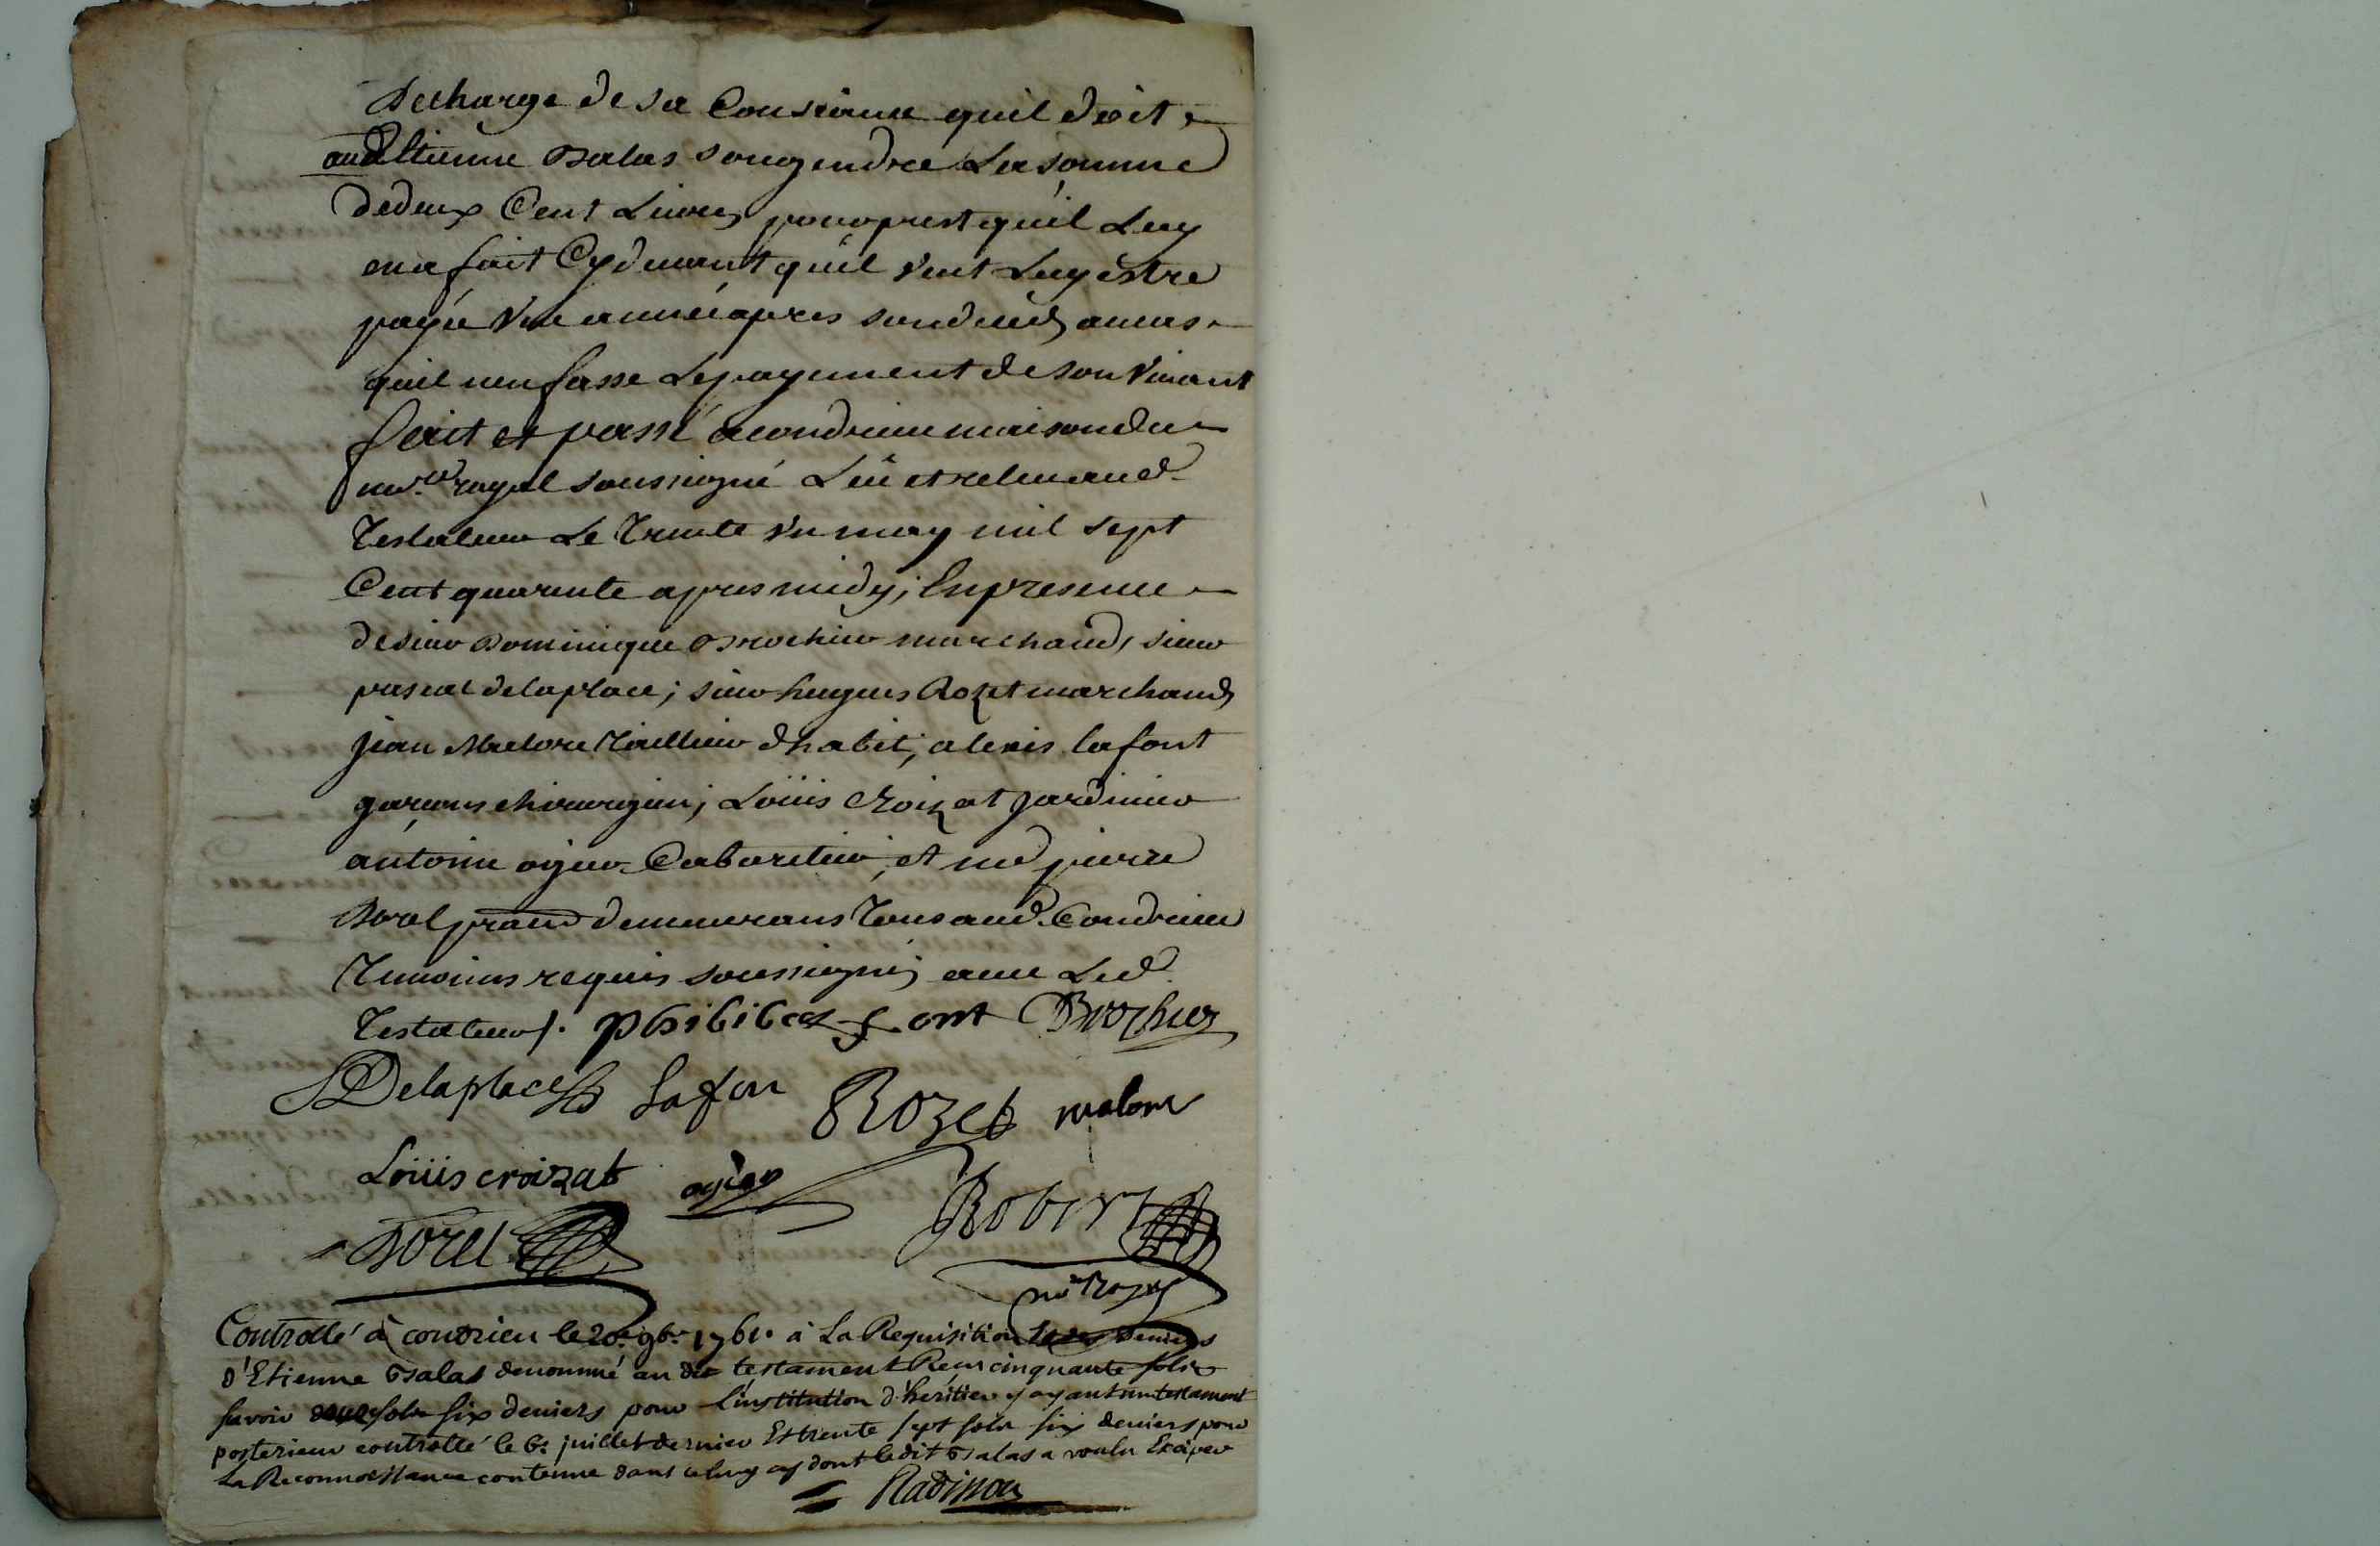 decharge de sa Consiance quil doit
aud Etienne Balas songendre La somme
dedeux Cent Livres pourprest quil Luy
ena fait Cydevant quil veut Luy estre
payée Vne année apres sondeceds aucas
quil nenfasse Lepayement de son vivant
fait et passé acondrieu maison du
no.re royal soussigné Leu et releu aud
Testateur Le Trente vn may mil sept
Cent quarente apres midy; En presence
de sieur Dominique Brochier marchand, sieur
pascal delaplace; sieur hugues Rozet marchand
jean Malore Tailleur dhabit; alexis lafont
garçons chirurgien; Loüis Croizat jardinier
antoine ogier Cabaretier; et me pierre
Borel pratn demeurans Tous aud. Condrieu
Temoins requis soussignés avec Led.
Testateur. phibibes font Brochier
Delaplace Lafon Rozet malore
Loüis croizat ogier
Borel Robert
no.re Royal
Controllé à condrien le 20.e 9b.re 1761. à La Requisition
d'Etienne Balas denommé au dit testament Reçu cinquante sols
savoir douze sols six deniers pour L'institution d'héritier y ayant un testament
posterieur controllé le 6.e juillet dernier Et trente sept sols six deniers pour
La Reconnoissance contenue dans celuy cy dont ledit Balas a voulu Exciper
Radisson